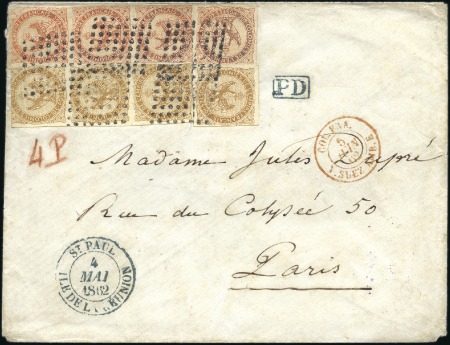 PD
COL. FRA.
5
JUIN
V. SUEZ
4 P
Madame Jules Dupré
Rue du Colysée 50
Paris
ST PAUL
4
MAI
1862
ILE DE LA RÉUNION